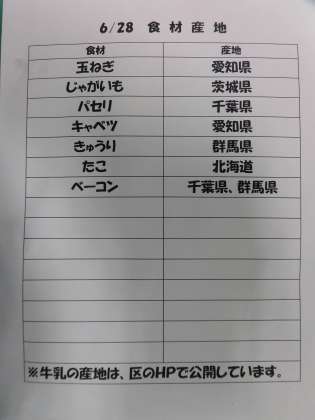 6/28 食材産地
食材 産地
玉ねぎ 愛知県
じゃがいも 茨城県
パセリ 千葉県
キャベツ 愛知県
きゅうり 群馬県
たこ 北海道
ベーコン 千葉県、群馬県
※牛乳の産地は、区のHPで公開しています。